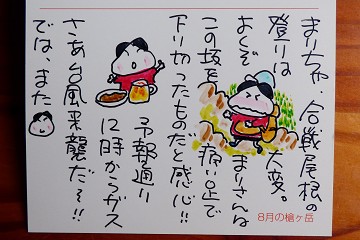 まりちゃ、合戦尾根の
登りは大変。
よくぞまりさんは
この坂を痛い足で
下り切ったものだと感心!!
予報通り
12時からガス
さあ台風来襲だぞ!!
では、また
8月の槍ヶ岳